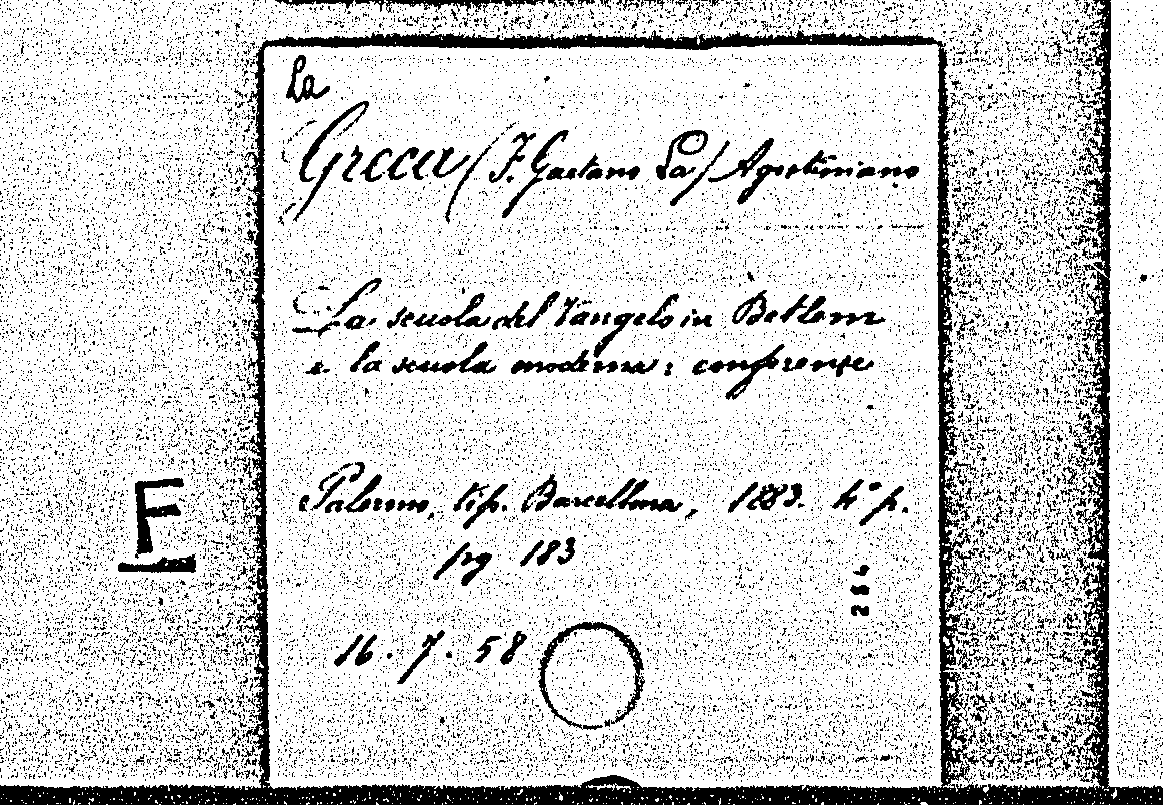 La
Greca (F. Gaetano La) Agostiniano
La scuola del Vangelo in Betlem
e la scuola moderna: conferenze
Palermo, tip. Barcellona, 1883. 4° p.
pg 183
284
16.7.58
F